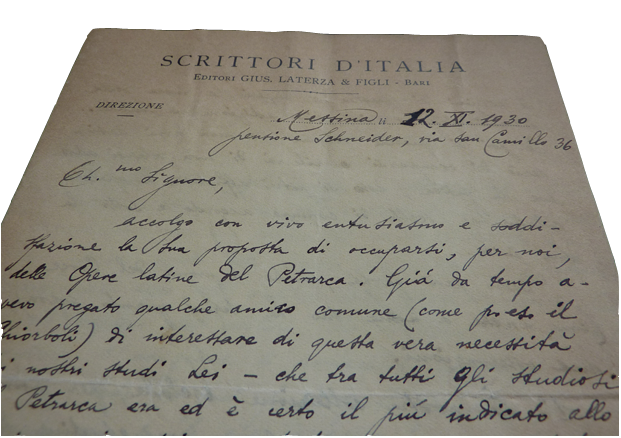 SCRITTORI D'ITALIA
EDITORI GIUS. LATERZA & FIGLI - BARI
DIREZIONE
Messina, lì 12. XI. 1930
pensione Schneider, via San Camillo 36
Ch.mo Signore,
accolgo con vivo entusiasmo e soddi-
sfazione la Sua proposta di occuparsi, per noi,
delle Opere latine del Petrarca. Giá da tempo a-
vevo pregato qualche amico comune (come p. es. il
Chiorboli) di interessare di questa vera necessità
i nostri studi Lei – che tra tutti gli studiosi
Petrarca era ed è certo il piú indicato allo